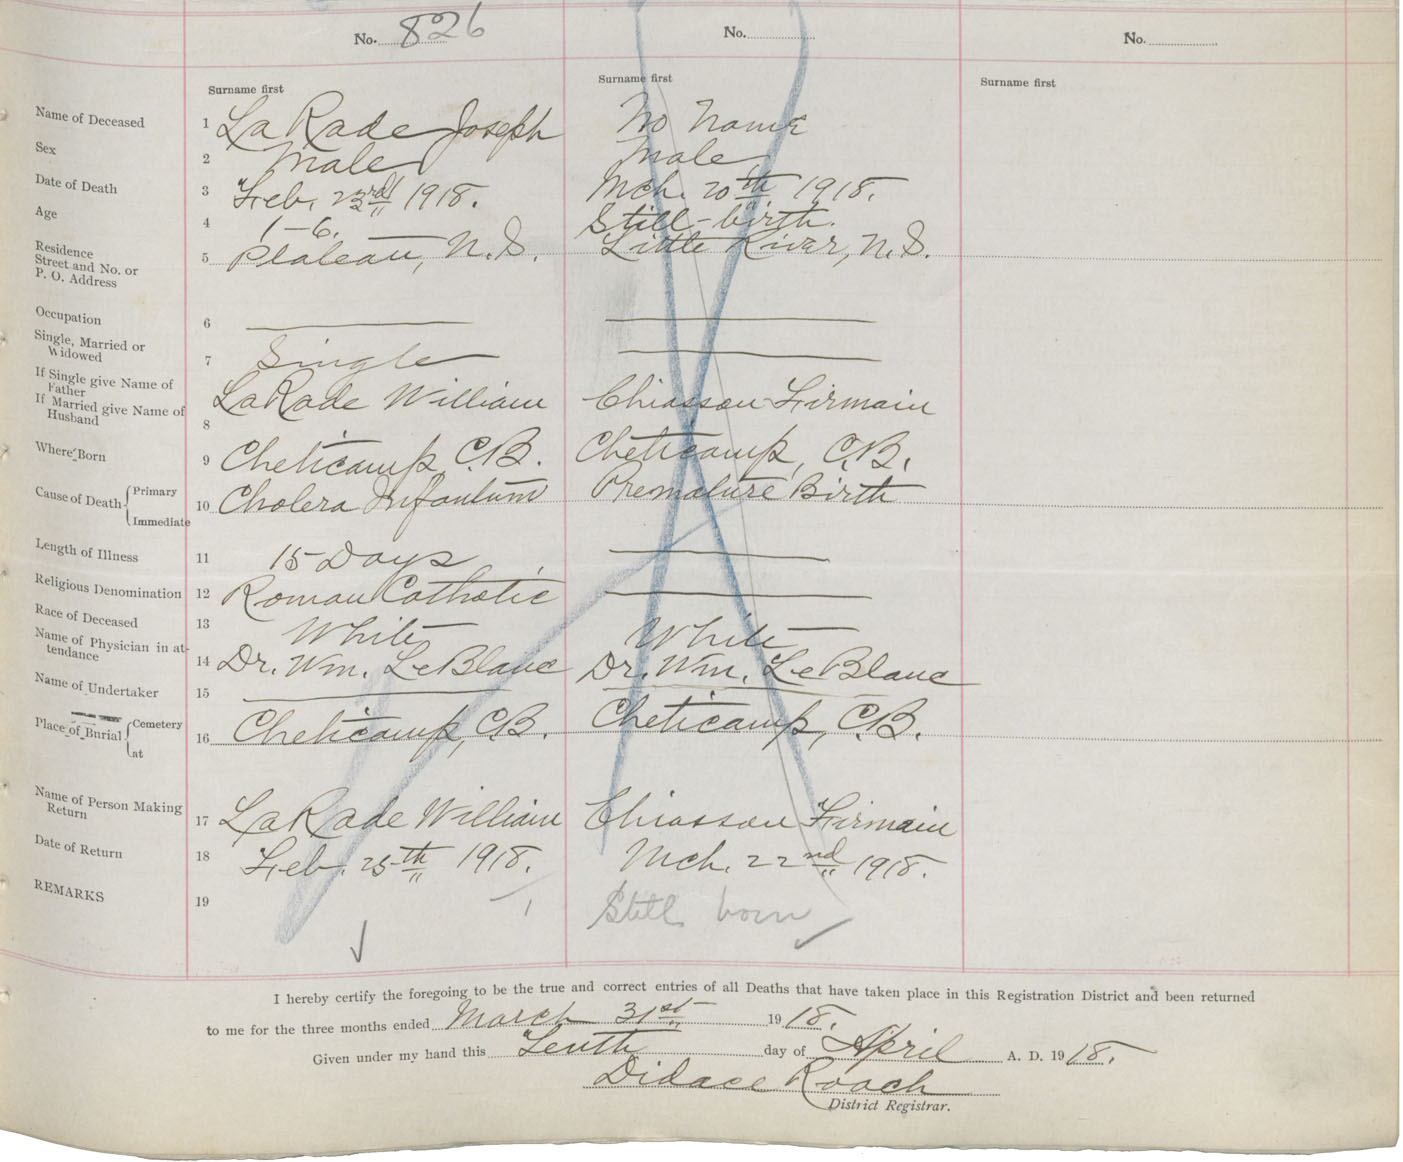 No. 826
No.
No.
Surname first
Surname first
Surname first
Name of Deceased 1 LaRade Joseph No Name
Sex 2 Male Male
Date of Death 3 Feb. 23rd 1918. Mch. 20th 1918.
Age 4 1-6. Still-birth.
Residence
Street and No. or
P. O. Address
5 Plateau, N.S. Little River, N.S.
Occupation 6
Single, Married or
Widowed
7 Single
If Single give Name of
Father
If Married give Name of
Husband
8 LaRade William Chiasson Firmain
Where Born 9 Cheticamp, C.B. Cheticamp, C.B.
Cause of Death Primary
Immediate
10 Cholera Infantum Premature Birth
Length of Illness 11 15 Days
Religious Denomination 12 Roman Catholic
Race of Deceased 13 White White
Name of Physician in at-
tendance
14 Dr. Wm. LeBlanc Dr. Wm. LeBlanc
Name of Undertaker 15
Place of Burial Cemetery
at
16 Cheticamp, C.B. Cheticamp, C.B.
Name of Person Making
Return
17 LaRade William Chiasson Firmain
Date of Return 18 Feb. 25th 1918. Mch. 22nd 1918.
REMARKS 19 Still born
I hereby certify the foregoing to be the true and correct entries of all Deaths that have taken place in this Registration District and been returned
to me for the three months ended March 31st 1918.
Given under my hand this Tenth day of April A. D. 1918.
Didace Roach
District Registrar.